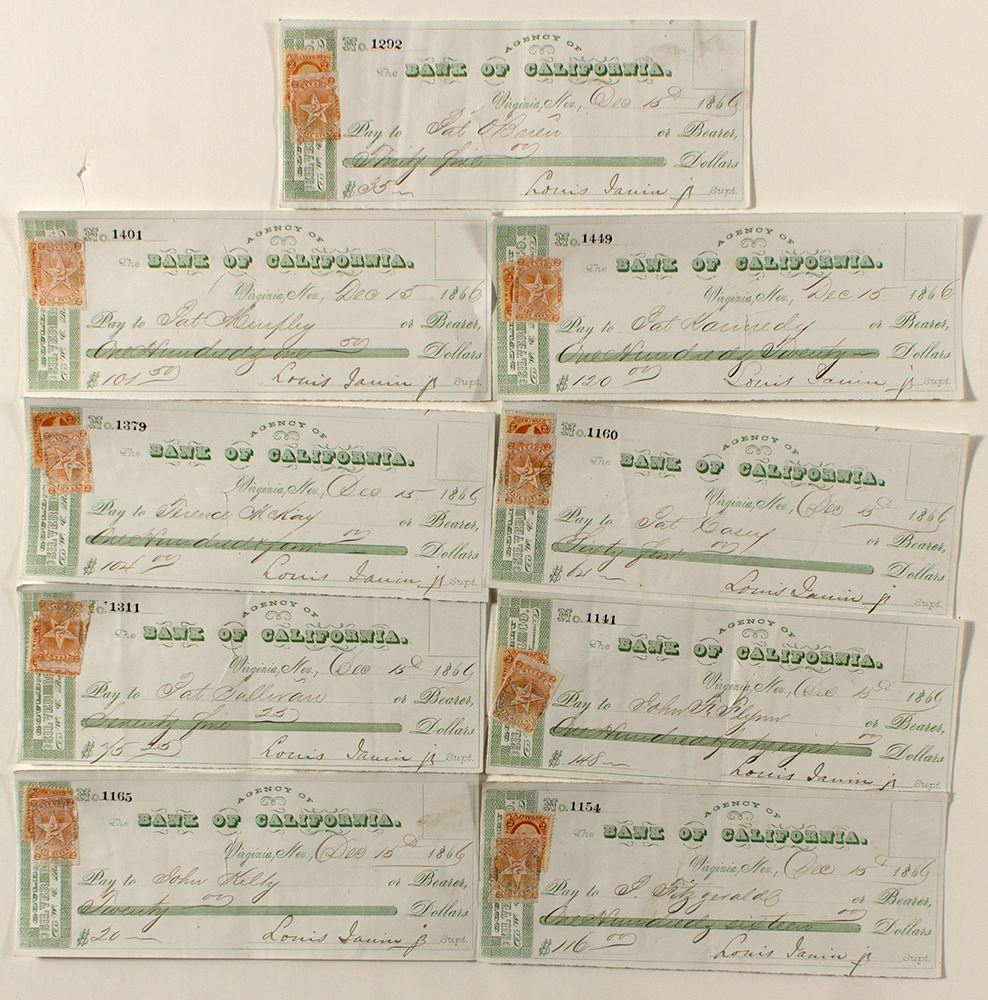 No. 1292
AGENCY OF
The BANK OF CALIFORNIA.
Virginia, Nev., Dec 15th 1866
Pay to Pat O'Brien or Bearer,
Thirty five 00 Dollars
$ 35 Louis Janin Jr Supt.
No. 1401
AGENCY OF
The BANK OF CALIFORNIA.
Virginia, Nev., Dec 15 1866
Pay to Pat Murphy or Bearer,
One Hundred & one 50 Dollars
$ 101 50 Louis Janin Jr Supt.
No. 1449
AGENCY OF
The BANK OF CALIFORNIA.
Virginia, Nev., Dec 15 1866
Pay to Pat Kannedy or Bearer,
One Hundred & Twenty Dollars
$ 120 00 Louis Janin Jr Supt.
No. 1379
AGENCY OF
The BANK OF CALIFORNIA.
Virginia, Nev., Dec 15 1866
Pay to Terence McKay or Bearer,
One Hundred & four 00 Dollars
$ 104 00 Louis Janin Jr Supt.
No. 1160
AGENCY OF
The BANK OF CALIFORNIA.
Virginia, Nev., Dec 15th 1866
Pay to Pat Casey or Bearer,
Sixty 00 Dollars
$ Louis Janin Jr Supt.
No. 1311
AGENCY OF
The BANK OF CALIFORNIA.
Virginia, Nev., Dec 15th 1866
Pay to Pat Sullivan or Bearer,
Seventy five 25 Dollars
$ 75 25 Louis Janin Jr Supt.
No. 1141
AGENCY OF
The BANK OF CALIFORNIA.
Virginia, Nev., Dec 15th 1866
Pay to John Flynn or Bearer,
One Hundred forty eight 00 Dollars
$ 148 Louis Janin Jr Supt.
No. 1165
AGENCY OF
The BANK OF CALIFORNIA.
Virginia, Nev., Dec 15th 1866
Pay to John Kelly or Bearer,
Twenty 00 Dollars
$ 20 Louis Janin Jr Supt.
No. 1154
AGENCY OF
The BANK OF CALIFORNIA.
Virginia, Nev., Dec 15th 1866
Pay to J. Fitzgerald or Bearer,
One Hundred & sixteen 00 Dollars
$ 116 00 Louis Janin Jr Supt.